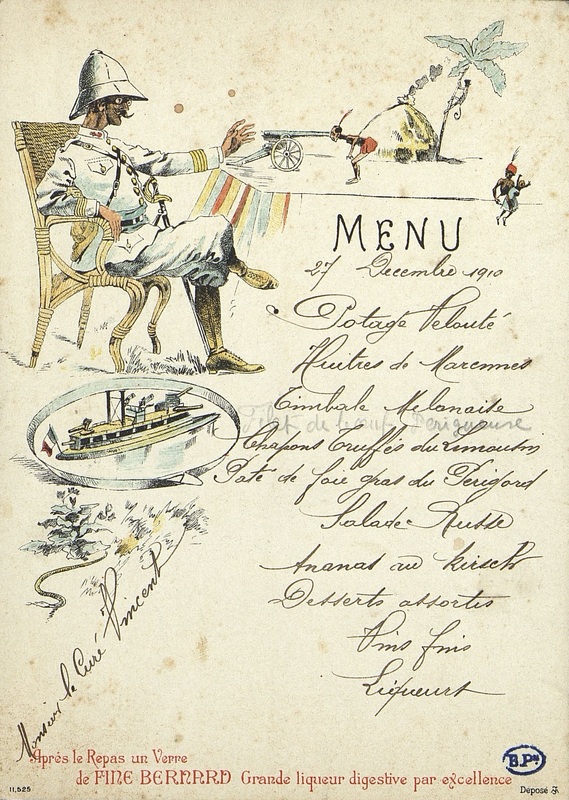 MENU
27 Decembre 1910
Potage Velouté
Huitres de Marennes
Timbale Milanaise
Filet de boeuf Périgueuse
Chapons Truffés du Limousin
Pâté de foie gras du Périgord
Salade Russe
Ananas au Kirsch
Desserts assortis
Vins fins
Liqueurs
Monsieur le Curé Vincent
Aprés le Repas un Verre
de FINE BERNARD Grande liqueur digestive par excellence
B.Pn
11,525
Déposé